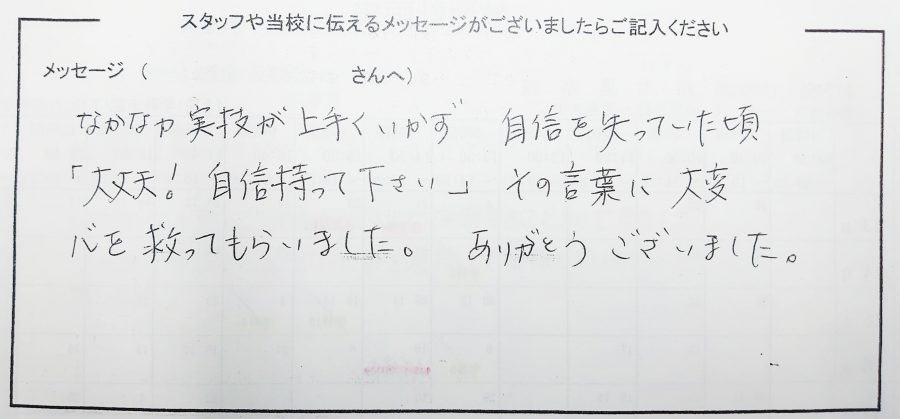 スタッフや当校に伝えるメッセージがございましたらご記入ください
メッセージ（　　　　　　　　　さんへ）
なかなか実技が上手くいかず　自信を失っていた頃
「大丈夫！　自信持って下さい」　その言葉に　大変
心を救ってもらいました。　ありがとうございました。